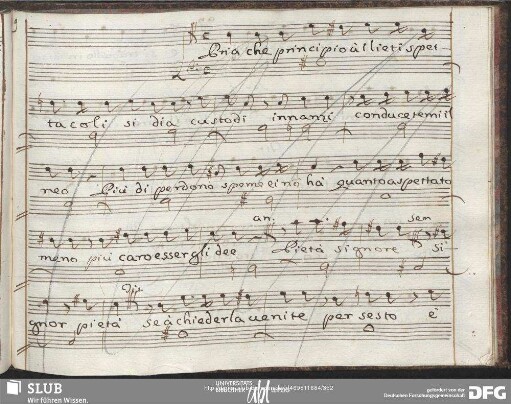 Pria che principio à lieti spet
tacoli si dia custodi innanzi conducetemi il
reo Più di perdono speme ei no hà quanto aspettato
meno più caro essergli dee Pietà signore si
an. sem
gnor pietà se à chiederla venite per sesto è
SLUB
Wir führen Wissen.
UNIVERSITÄTS
DFG
gefördert von der
Deutschen Forschungsgemeinschaft